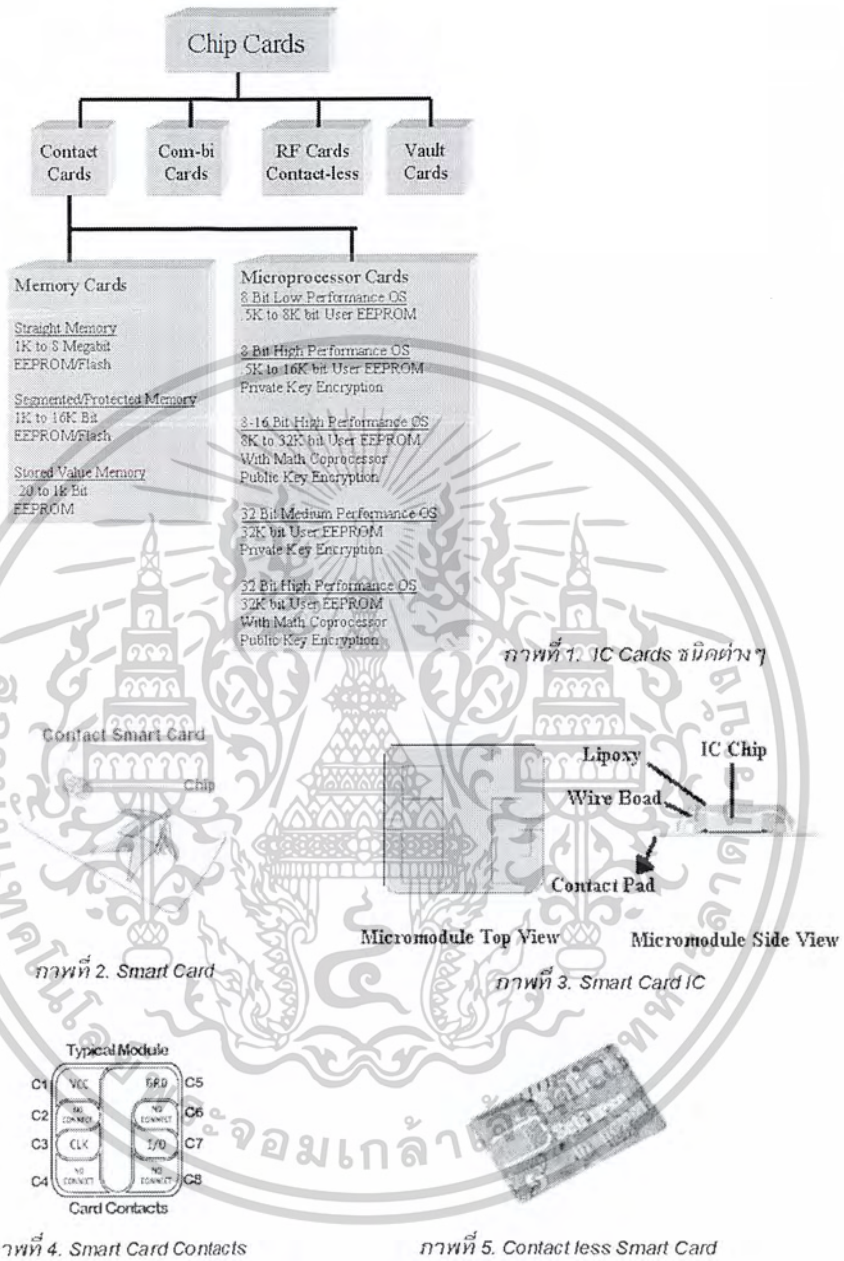 Chip Cards
Contact
Cards
Com-bi
Cards
RF Cards
Contact-less
Vault
Cards
Memory Cards
Straight Memory
1K to 8 Megabit
EEPROM/Flash
Segmented/Protected Memory
1K to 16K Bit
EEPROM/Flash
Stored Value Memory
.20 to 1k Bit
EEPROM
Microprocessor Cards
8 Bit Low Performance OS
.5K to 8K bit User EEPROM
8 Bit High Performance OS
.5K to 16K bit User EEPROM
Private Key Encryption
8-16 Bit High Performance OS
8K to 32K bit User EEPROM
With Math Coprocessor
Public Key Encryption
32 Bit Medium Performance OS
32K bit User EEPROM
Private Key Encryption
32 Bit High Performance OS
32K bit User EEPROM
With Math Coprocessor
Public Key Encryption
ภาพที่ 1. IC Cards ชนิดต่างๆ
Contact Smart Card
Chip
ภาพที่ 2. Smart Card
Lipoxy
IC Chip
Wire Boad
Contact Pad
Micromodule Top View
Micromodule Side View
ภาพที่ 3. Smart Card IC
Typical Module
C1 VCC GRD C5
C2 NO CONNECT NO CONNECT C6
C3 CLK I/O C7
C4 NO CONNECT NO CONNECT C8
Card Contacts
าพที่ 4. Smart Card Contacts
ภาพที่ 5. Contact less Smart Card
พระจอมเกล้าเจ้า